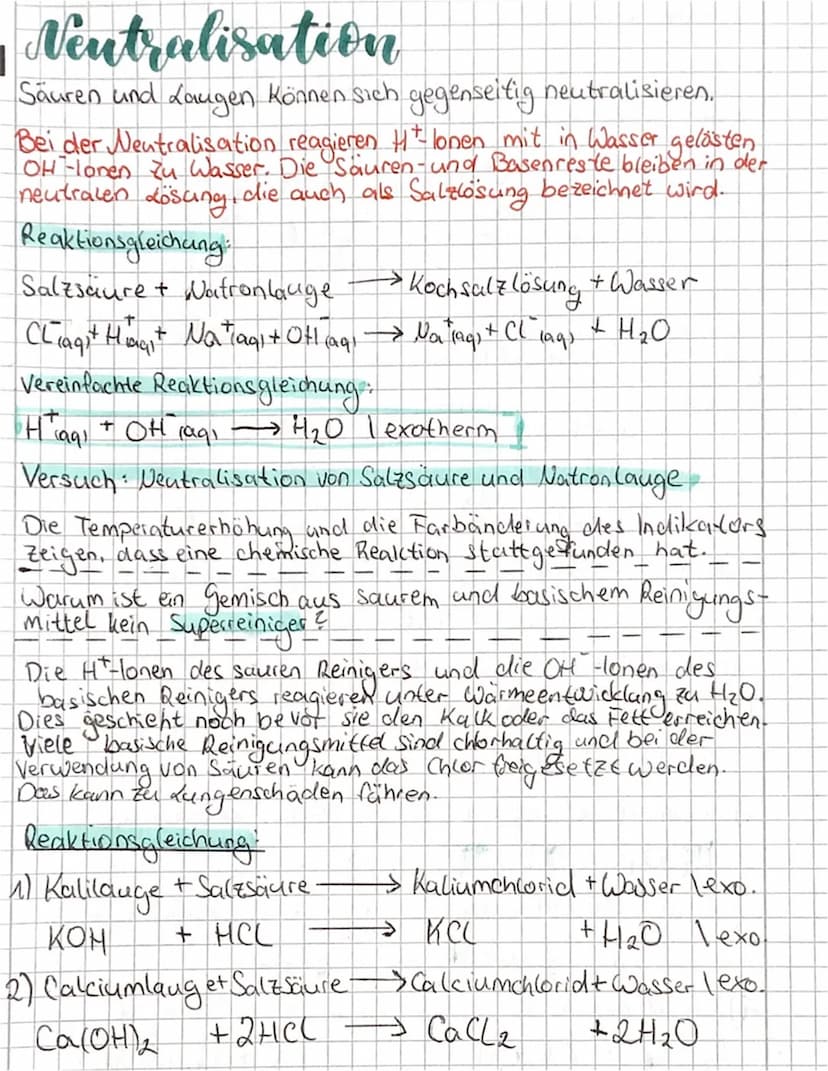 Neutralisation
Säuren und Laugen können sich gegenseitig neutralisieren.
Bei der Neutralisation reagieren H⁺-Ionen mit in Wasser gelösten
OH⁻-Ionen zu Wasser. Die Säuren- und Basenreste bleiben in der
neutralen Lösung, die auch als Salzlösung bezeichnet wird.
Reaktionsgleichung:
Salzsäure + Natronlauge → Kochsalzlösung + Wasser
Cl⁻(aq) + H⁺(aq) + Na⁺(aq) + OH⁻(aq) → Na⁺(aq) + Cl⁻(aq) + H₂O
Vereinfachte Reaktionsgleichung:
H⁺(aq) + OH⁻(aq) → H₂O | exotherm
Versuch: Neutralisation von Salzsäure und Natronlauge
Die Temperaturerhöhung und die Farbänderung des Indikators
zeigen, dass eine chemische Reaktion stattgefunden hat.
Warum ist ein Gemisch aus saurem und basischem Reinigungs-
mittel kein Superreiniger?
Die H⁺-Ionen des sauren Reinigers und die OH⁻-Ionen des
basischen Reinigers reagieren unter Wärmeentwicklung zu H₂O.
Dies geschieht noch bevor sie den Kalk oder das Fett erreichen.
Viele basische Reinigungsmittel sind chlorhaltig und bei der
Verwendung von Säuren kann das Chlor freigesetzt werden.
Das kann zu Lungenschäden führen.
Reaktionsgleichung:
1) Kalilauge + Salzsäure → Kaliumchlorid + Wasser | exo.
KOH + HCL → KCL + H₂O | exo.
2) Calciumlauge + Salzsäure → Calciumchlorid + Wasser | exo.
Ca(OH)₂ + 2HCl → CaCL₂ + 2H₂O